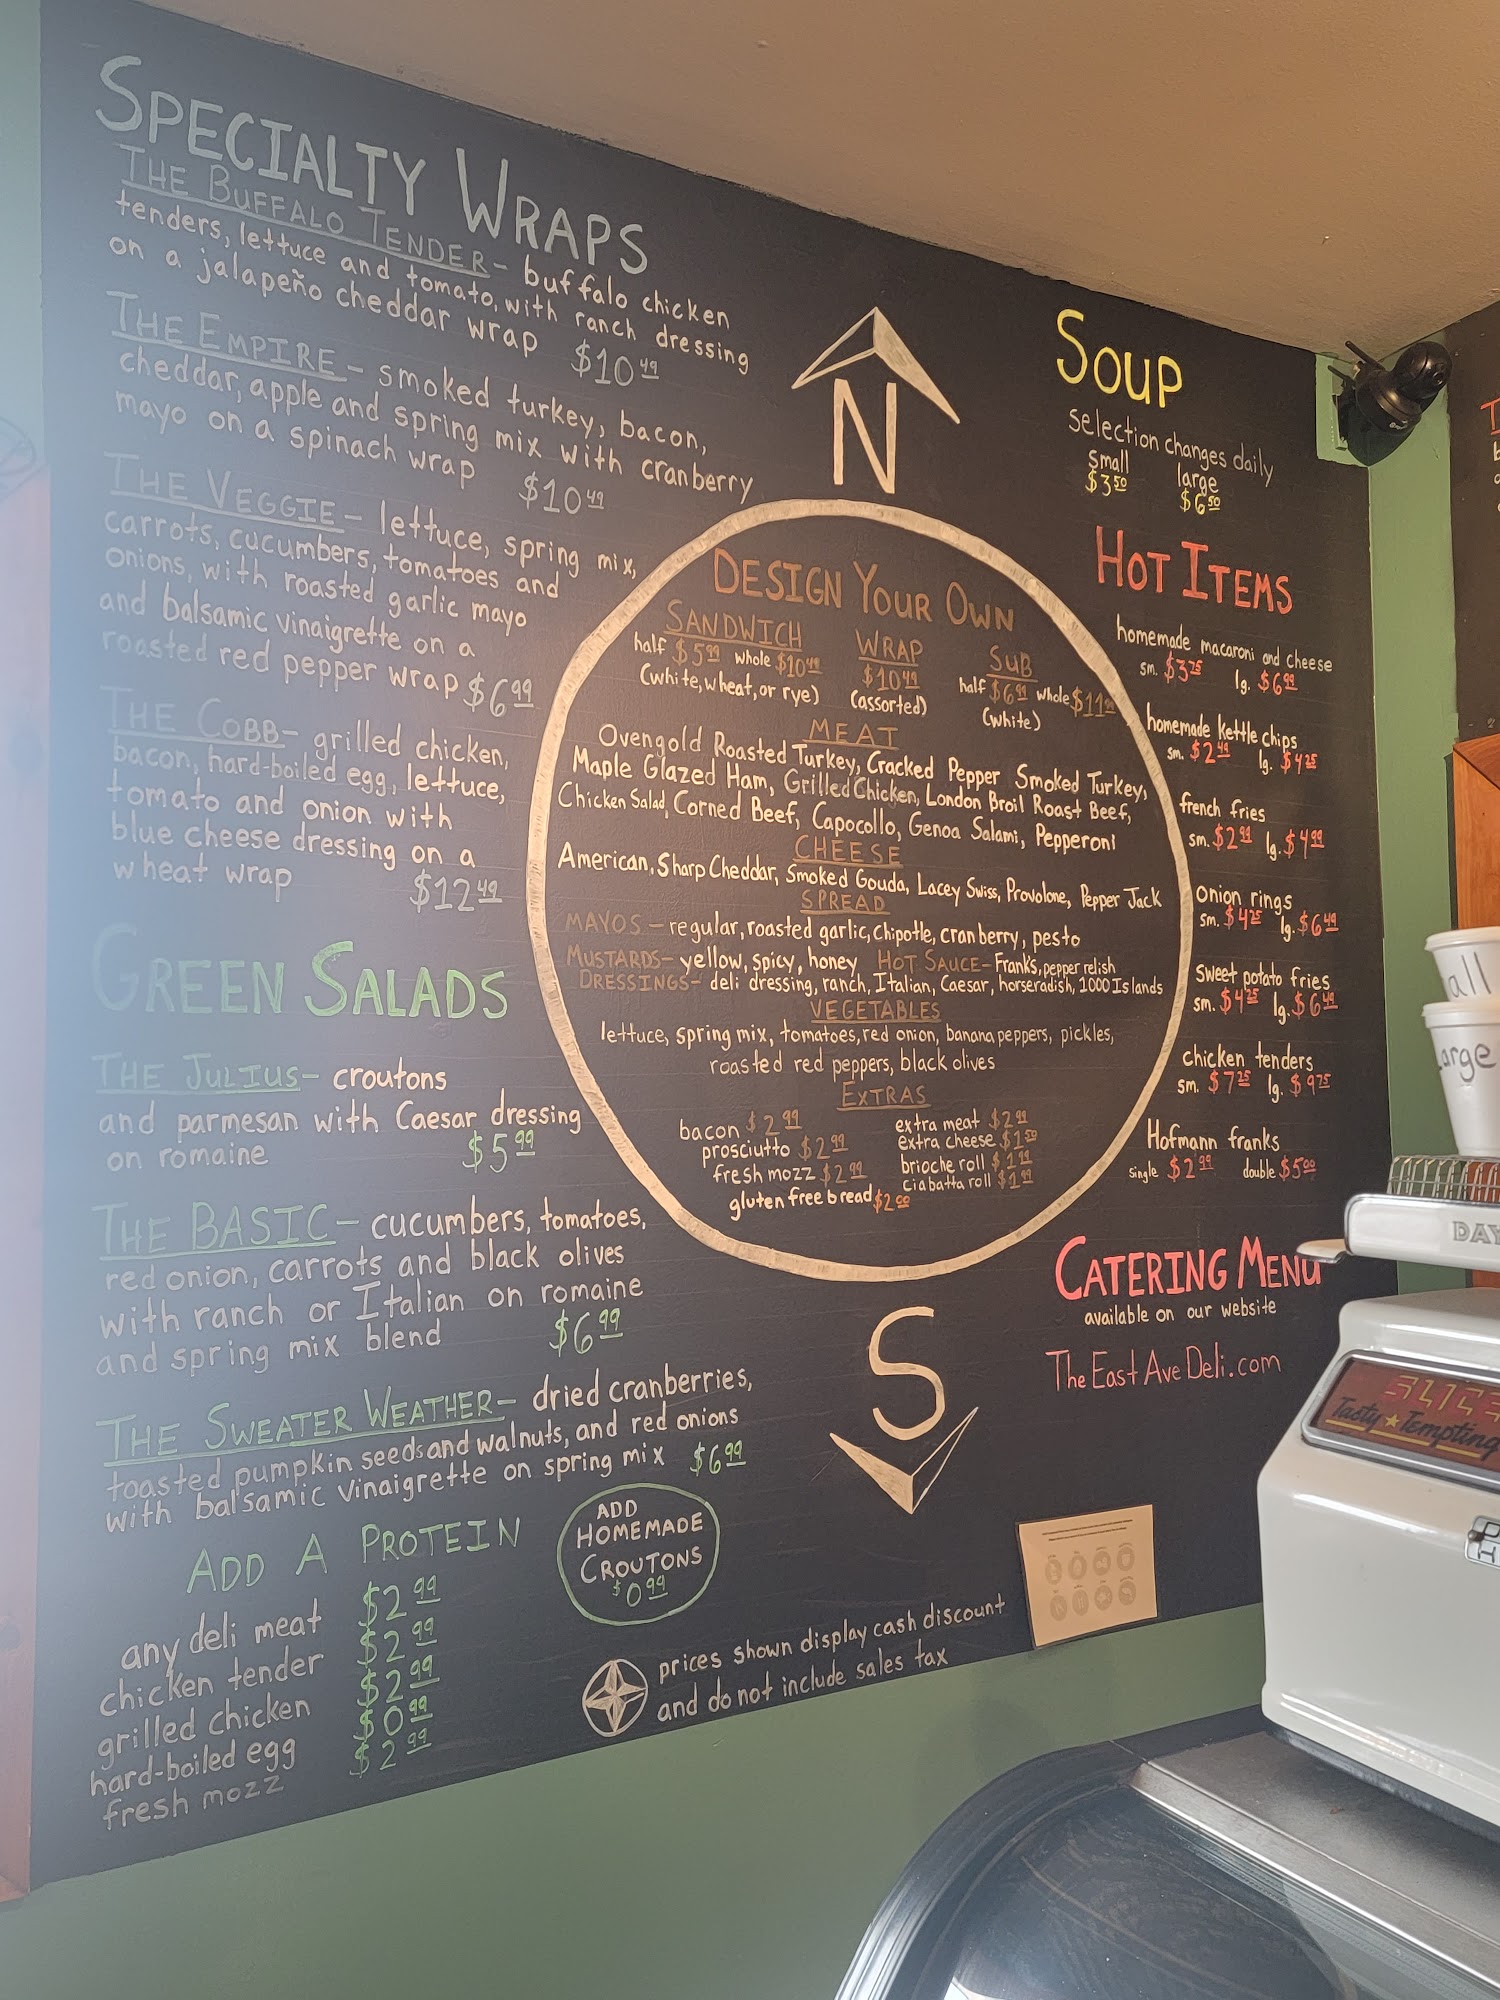 SPECIALTY WRAPS
THE BUFFALO TENDER- buffalo chicken
tenders, lettuce and tomato, with ranch dressing
on a jalapeño cheddar wrap $10 49
THE EMPIRE- smoked turkey, bacon,
cheddar, apple and spring mix with cranberry
mayo on a spinach wrap $10 49
THE VEGGIE- lettuce, spring mix,
carrots, cucumbers, tomatoes and
onions, with roasted garlic mayo
and balsamic vinaigrette on a
roasted red pepper wrap $6 99
THE COBB- grilled chicken,
bacon, hard-boiled egg, lettuce,
tomato and onion with
blue cheese dressing on a
wheat wrap $12 49
GREEN SALADS
THE JULIUS- croutons
and parmesan with Caesar dressing
on romaine $5 99
THE BASIC- cucumbers, tomatoes,
red onion, carrots and black olives
with ranch or Italian on romaine
and spring mix blend $6 99
THE SWEATER WEATHER- dried cranberries,
toasted pumpkin seeds and walnuts, and red onions
with balsamic vinaigrette on spring mix $6 99
ADD A PROTEIN
any deli meat $2 99
chicken tender $2 99
grilled chicken $2 99
hard-boiled egg $0 99
fresh mozz $2 99
ADD
HOMEMADE
CROUTONS
$0 99
N
DESIGN YOUR OWN
SANDWICH
half $5 99 whole $10 49
(white, wheat, or rye)
WRAP
$10 49
(assorted)
SUB
half $6 99 whole $11 99
(white)
MEAT
Ovengold Roasted Turkey, Cracked Pepper Smoked Turkey,
Maple Glazed Ham, Grilled Chicken, London Broil Roast Beef,
Chicken Salad, Corned Beef, Capocollo, Genoa Salami, Pepperoni
CHEESE
American, Sharp Cheddar, Smoked Gouda, Lacey Swiss, Provolone, Pepper Jack
SPREAD
MAYOS - regular, roasted garlic, chipotle, cranberry, pesto
MUSTARDS- yellow, spicy, honey HOT SAUCE- Frank's, pepper relish
DRESSINGS- deli dressing, ranch, Italian, Caesar, horseradish, 1000 Islands
VEGETABLES
lettuce, spring mix, tomatoes, red onion, banana peppers, pickles,
roasted red peppers, black olives
EXTRAS
bacon $2 99
prosciutto $2 99
fresh mozz $2 99
gluten free bread $2 00
extra meat $2 99
extra cheese $1 50
brioche roll $1 99
ciabatta roll $1 99
S
prices shown display cash discount
and do not include sales tax
SOUP
selection changes daily
small large
$3 50 $6 50
HOT ITEMS
homemade macaroni and cheese
sm. $3 75 lg. $6 99
homemade kettle chips
sm. $2 49 lg. $4 25
french fries
sm. $2 99 lg. $4 99
onion rings
sm. $4 25 lg. $6 49
sweet potato fries
sm. $4 25 lg. $6 49
chicken tenders
sm. $7 25 lg. $9 75
Hofmann franks
single $2 99 double $5 00
CATERING MENU
available on our website
TheEastAveDeli.com
all
Large
DAY
Tasty Tempting